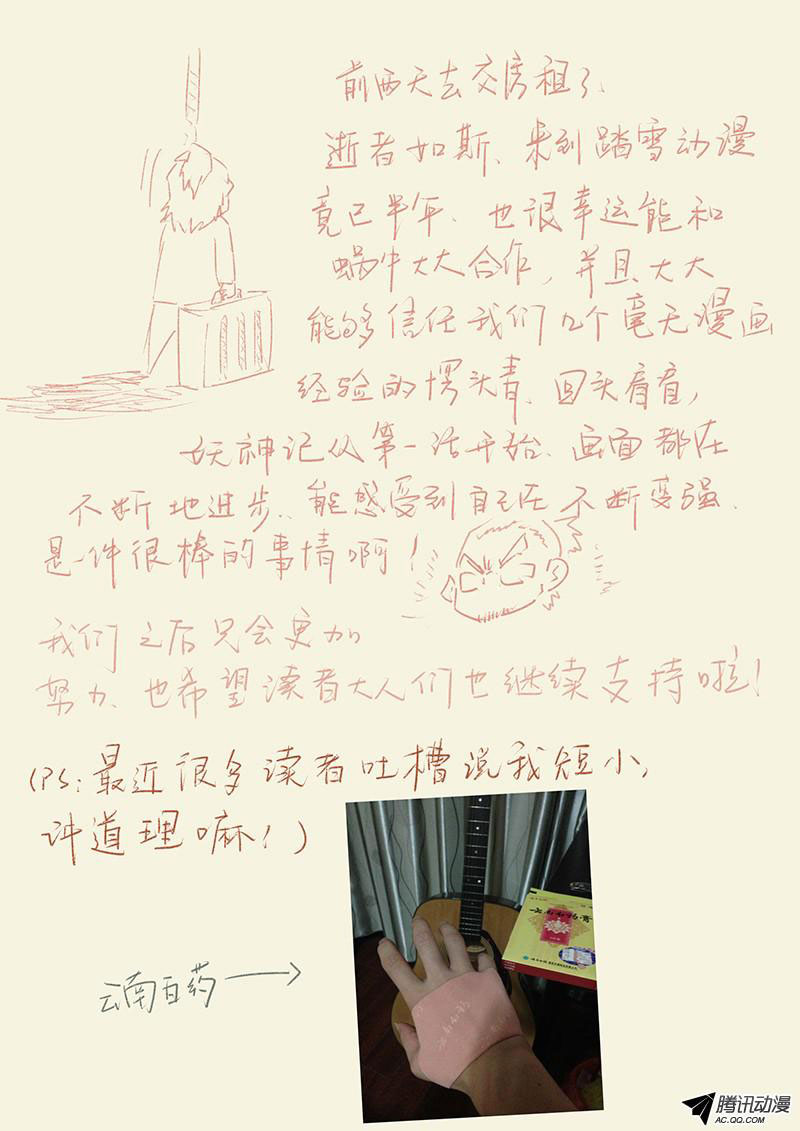 前两天去交房租了、
逝者如斯、来到踏雪动漫
竟已半年、也很幸运能和
蜗牛大大合作，并且大大
能够信任我们几个毫无漫画
经验的愣头青、回头看看，
妖神记从第一话开始、画面都在
不断地进步、能感受到自己在不断变强、
是一件很棒的事情啊！
我们之后只会更加
努力、也希望读者大人们也继续支持啦！
(PS:最近很多读者吐槽说我短小，
讲道理嘛！)
云南白药
云南白药膏
云南白药
腾讯动漫
AC.QQ.COM